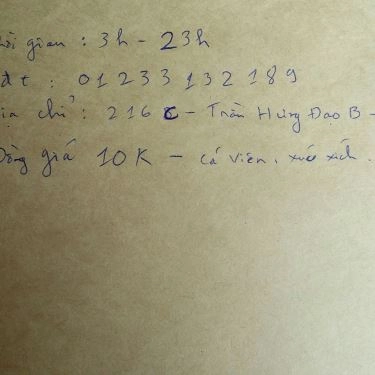 ời gian : 3h - 23h
đt : 01233132189
ịa chỉ : 216 C - Trần Hưng Đạo B -
Đồng giá 10K - cá viên, xúc xích.